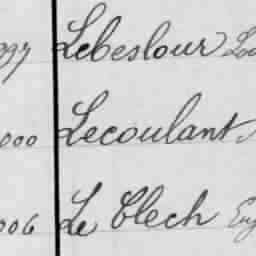 997 Lebeslour
000 Lecoulant
006 Le Clech